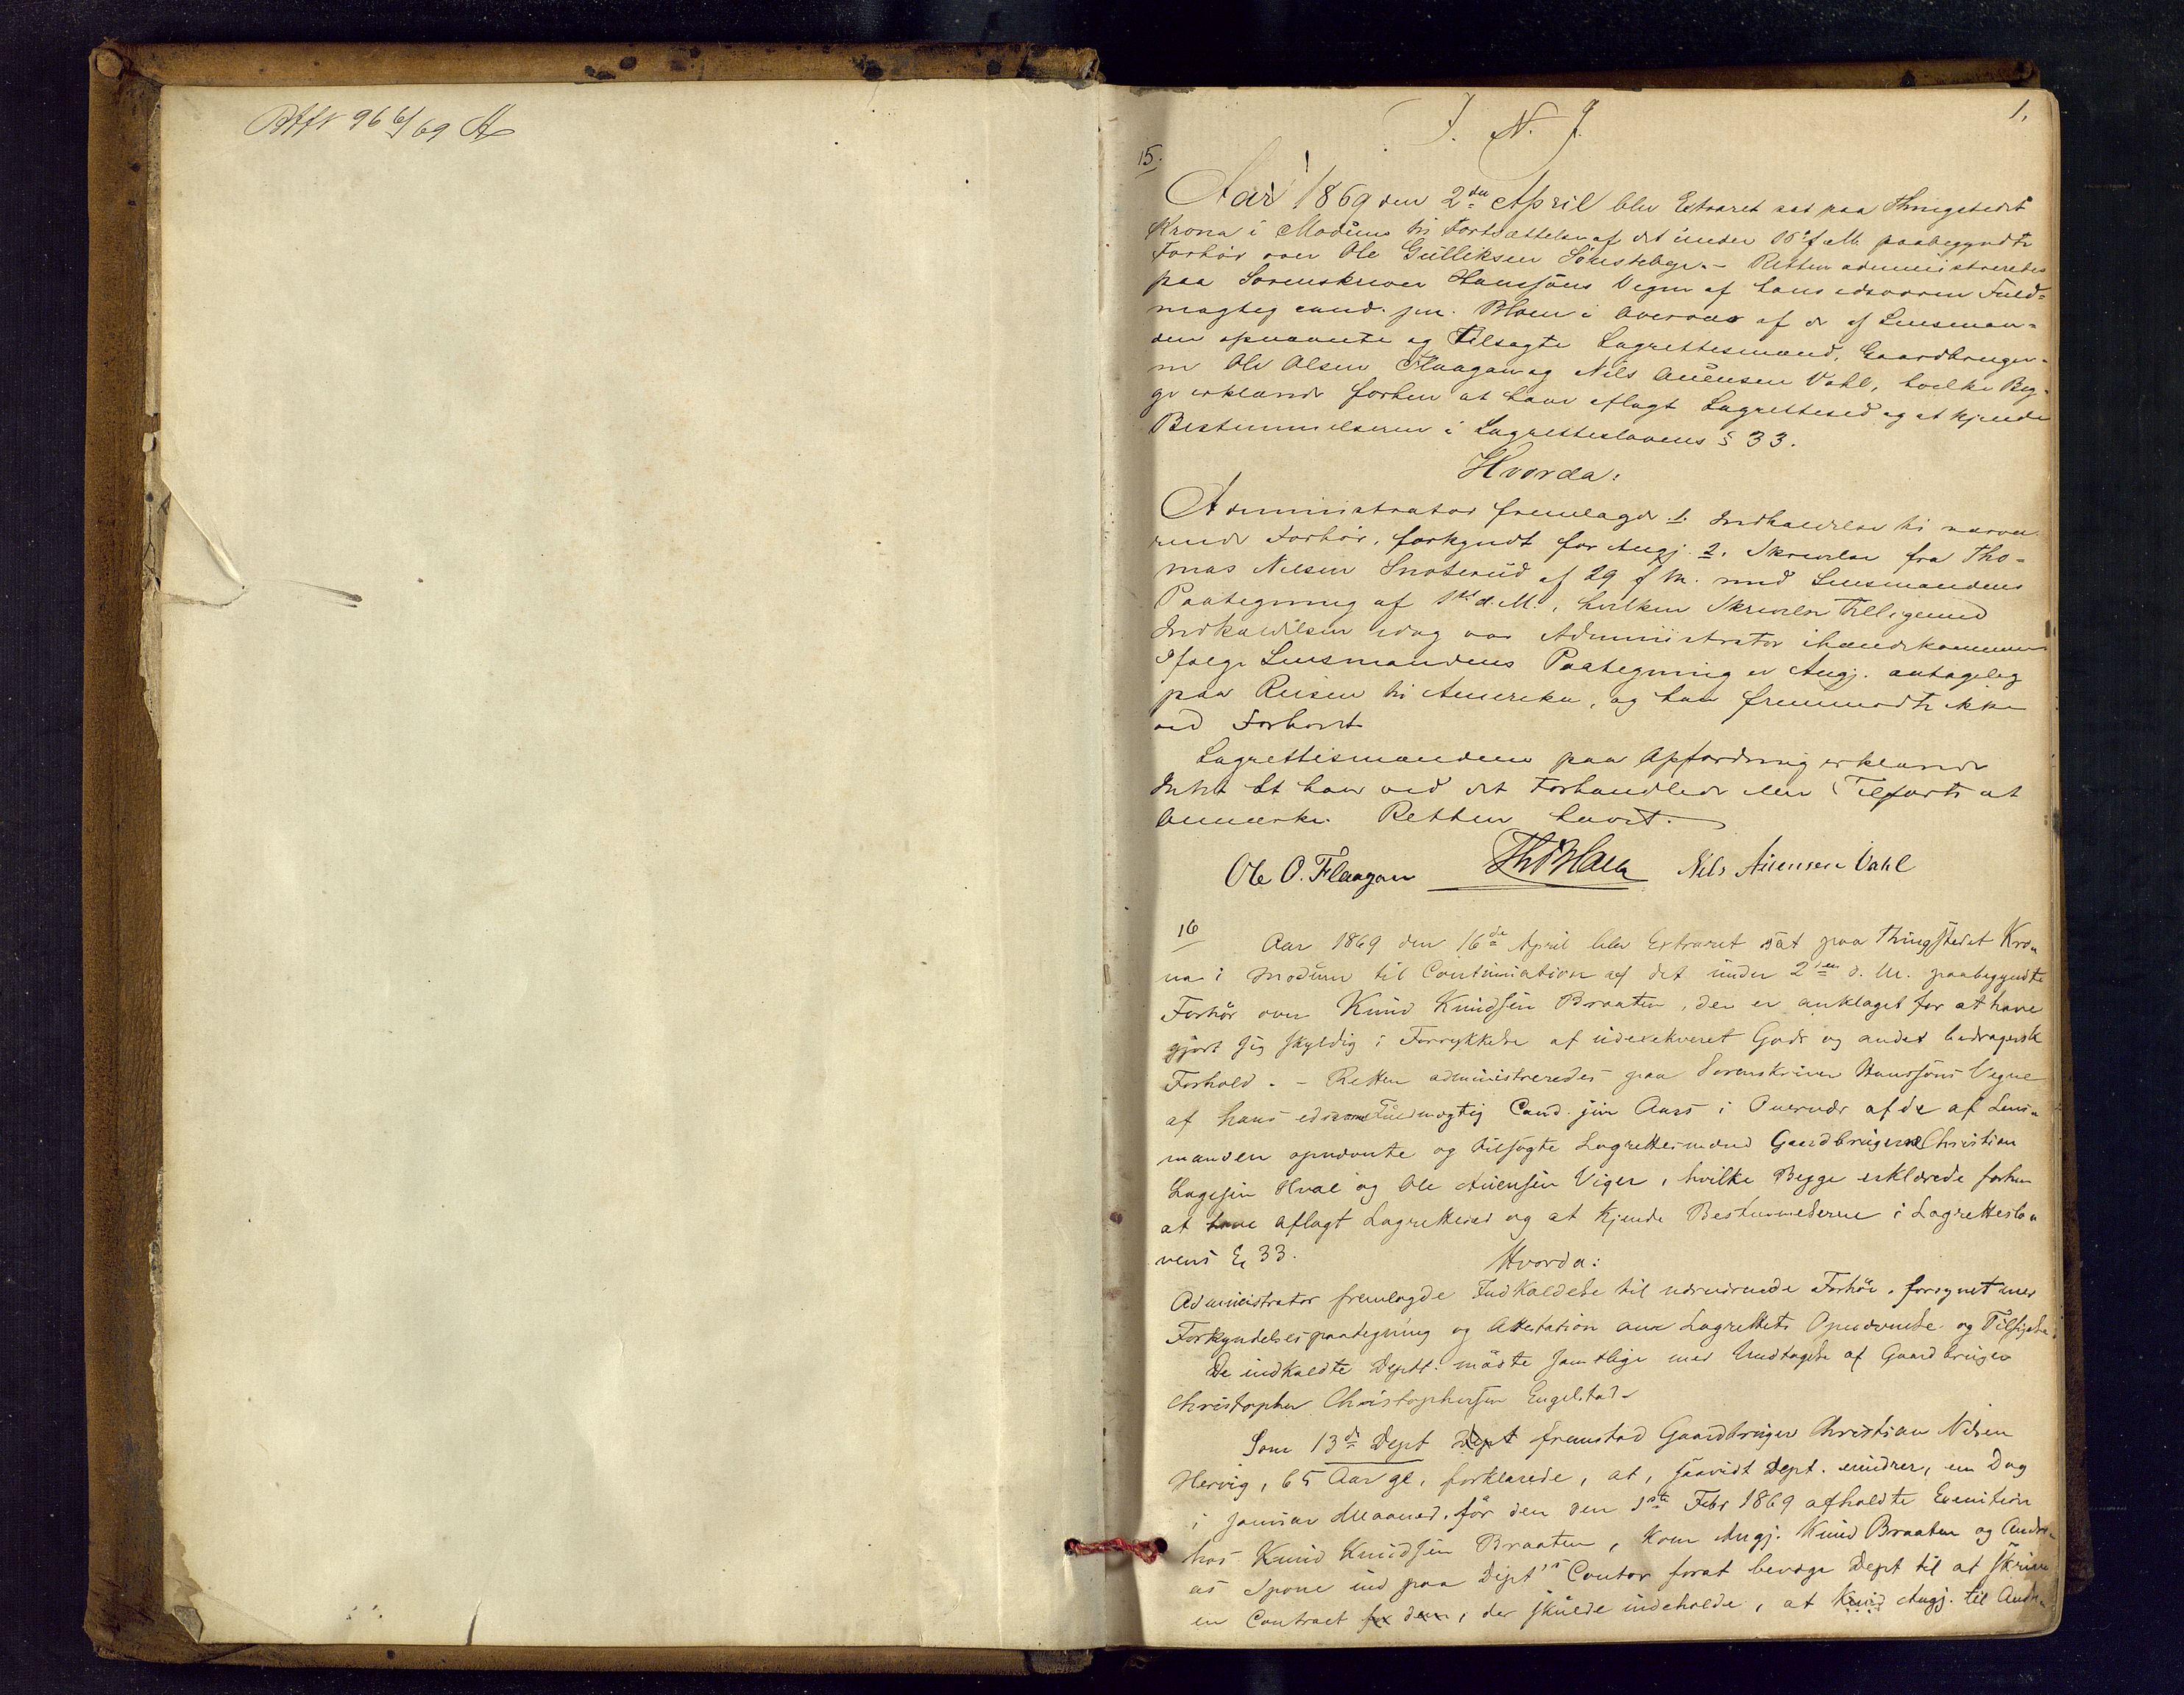 96 6/69
1.
I. N. J.
15.
Aar 1869 den 2den April blev Extraret sat paa Thingstedet
Krona i Modum til Fortsættelse af det under 15 f. M. paabegyndte
Forhør over Ole Gulliksen . – Retten administreredes
paa Sorenskriver Hanssøns Vegne af hans edsvorne Fuld-
mægtig cand. jur. Blom i Overvær af de af Lensman-
den opnævnte og tilsagte Lagrettesmænd, Gaardbruger-
ne Ole Olsen Flaagan og Nils Auensen Vahl, hvilke Beg-
ge erklærede forhen at have aflagt Lagrettesed og at kjende
Bestemmelserne i Lagretteslovens § 33.
Hvorda:
Administrator fremlagde 1. Indkaldelse til nærvæ-
rende Forhør, forkyndt for Angj. 2. Skrivelse fra Tho-
mas Nilsen Snoterud af 29 f. M. med Lensmandens
Paategning af 1ste d. M., hvilken Skrivelse tilligemed
Indkaldelsen idag var Administrator ihændekommen
Ifølge Lensmandens Paategning er Angj. antagelig
paa Reisen til Amerika, og han fremmødte ikke
ved Forhøret
Lagrettesmændene paa Opfordring erklærede
Intet at have ved det Forhandlede eller Tilførte at
bemærke. Retten hævet.
Ole O. Flaagan Th Blom Nils Auensen Vahl
16
Aar 1869 den 16de April blev Extraret sat paa Thingstedet Kro-
na i Modum til Continuation af det under 2den d. M. paabegyndte
Forhør over Knud Knudsen Braaten, der er anklaget for at have
gjort sig skyldig i Forrykkelse af udexekveret Gods og andet bedragersk
Forhold. – Retten administreredes paa Sorenskriver Hanssøns Vegne
af hans edsvorne Fuldmægtig Cand. jur Aars i Overvær af de af Lens-
manden opnævnte og tilsagte Lagrettesmænd Gaardbrugerne Christian
Lagesen Hval og Ole Auensen Viger, hvilke Begge erklærede forhen
at have aflagt Lagrettesed og at kjende Bestemmelserne i Lagretteslo-
vens § 33. Hvorda:
Administrator fremlagde Indkaldelse til nærværende Forhør, forsynet med
Forkyndelsespaategning og Attestation om Lagrettets Opnævnelse og Tilsigelse
De indkaldte Deptt. mødte samtlige med Undtagelse af Gaardbruger
Christopher Christophersen Engelstad –
Som 13de Dept Dept fremstod Gaardbruger Christian Nilsen
Hervig, 65 Aar gl. forklarede, at, saavidt Dept. erindrer, en Dag
i Januar Maaned, før den den 1ste Febr 1869 afholdte Execution
hos Knud Knudsen Braaten, kom Angj. Knud Braaten og Andre-
as Spone ind paa Deptts Contor forat bevæge Dept til at skrive
en Contract for dem, der skulde indeholde, at Knud Angj. til Andre-